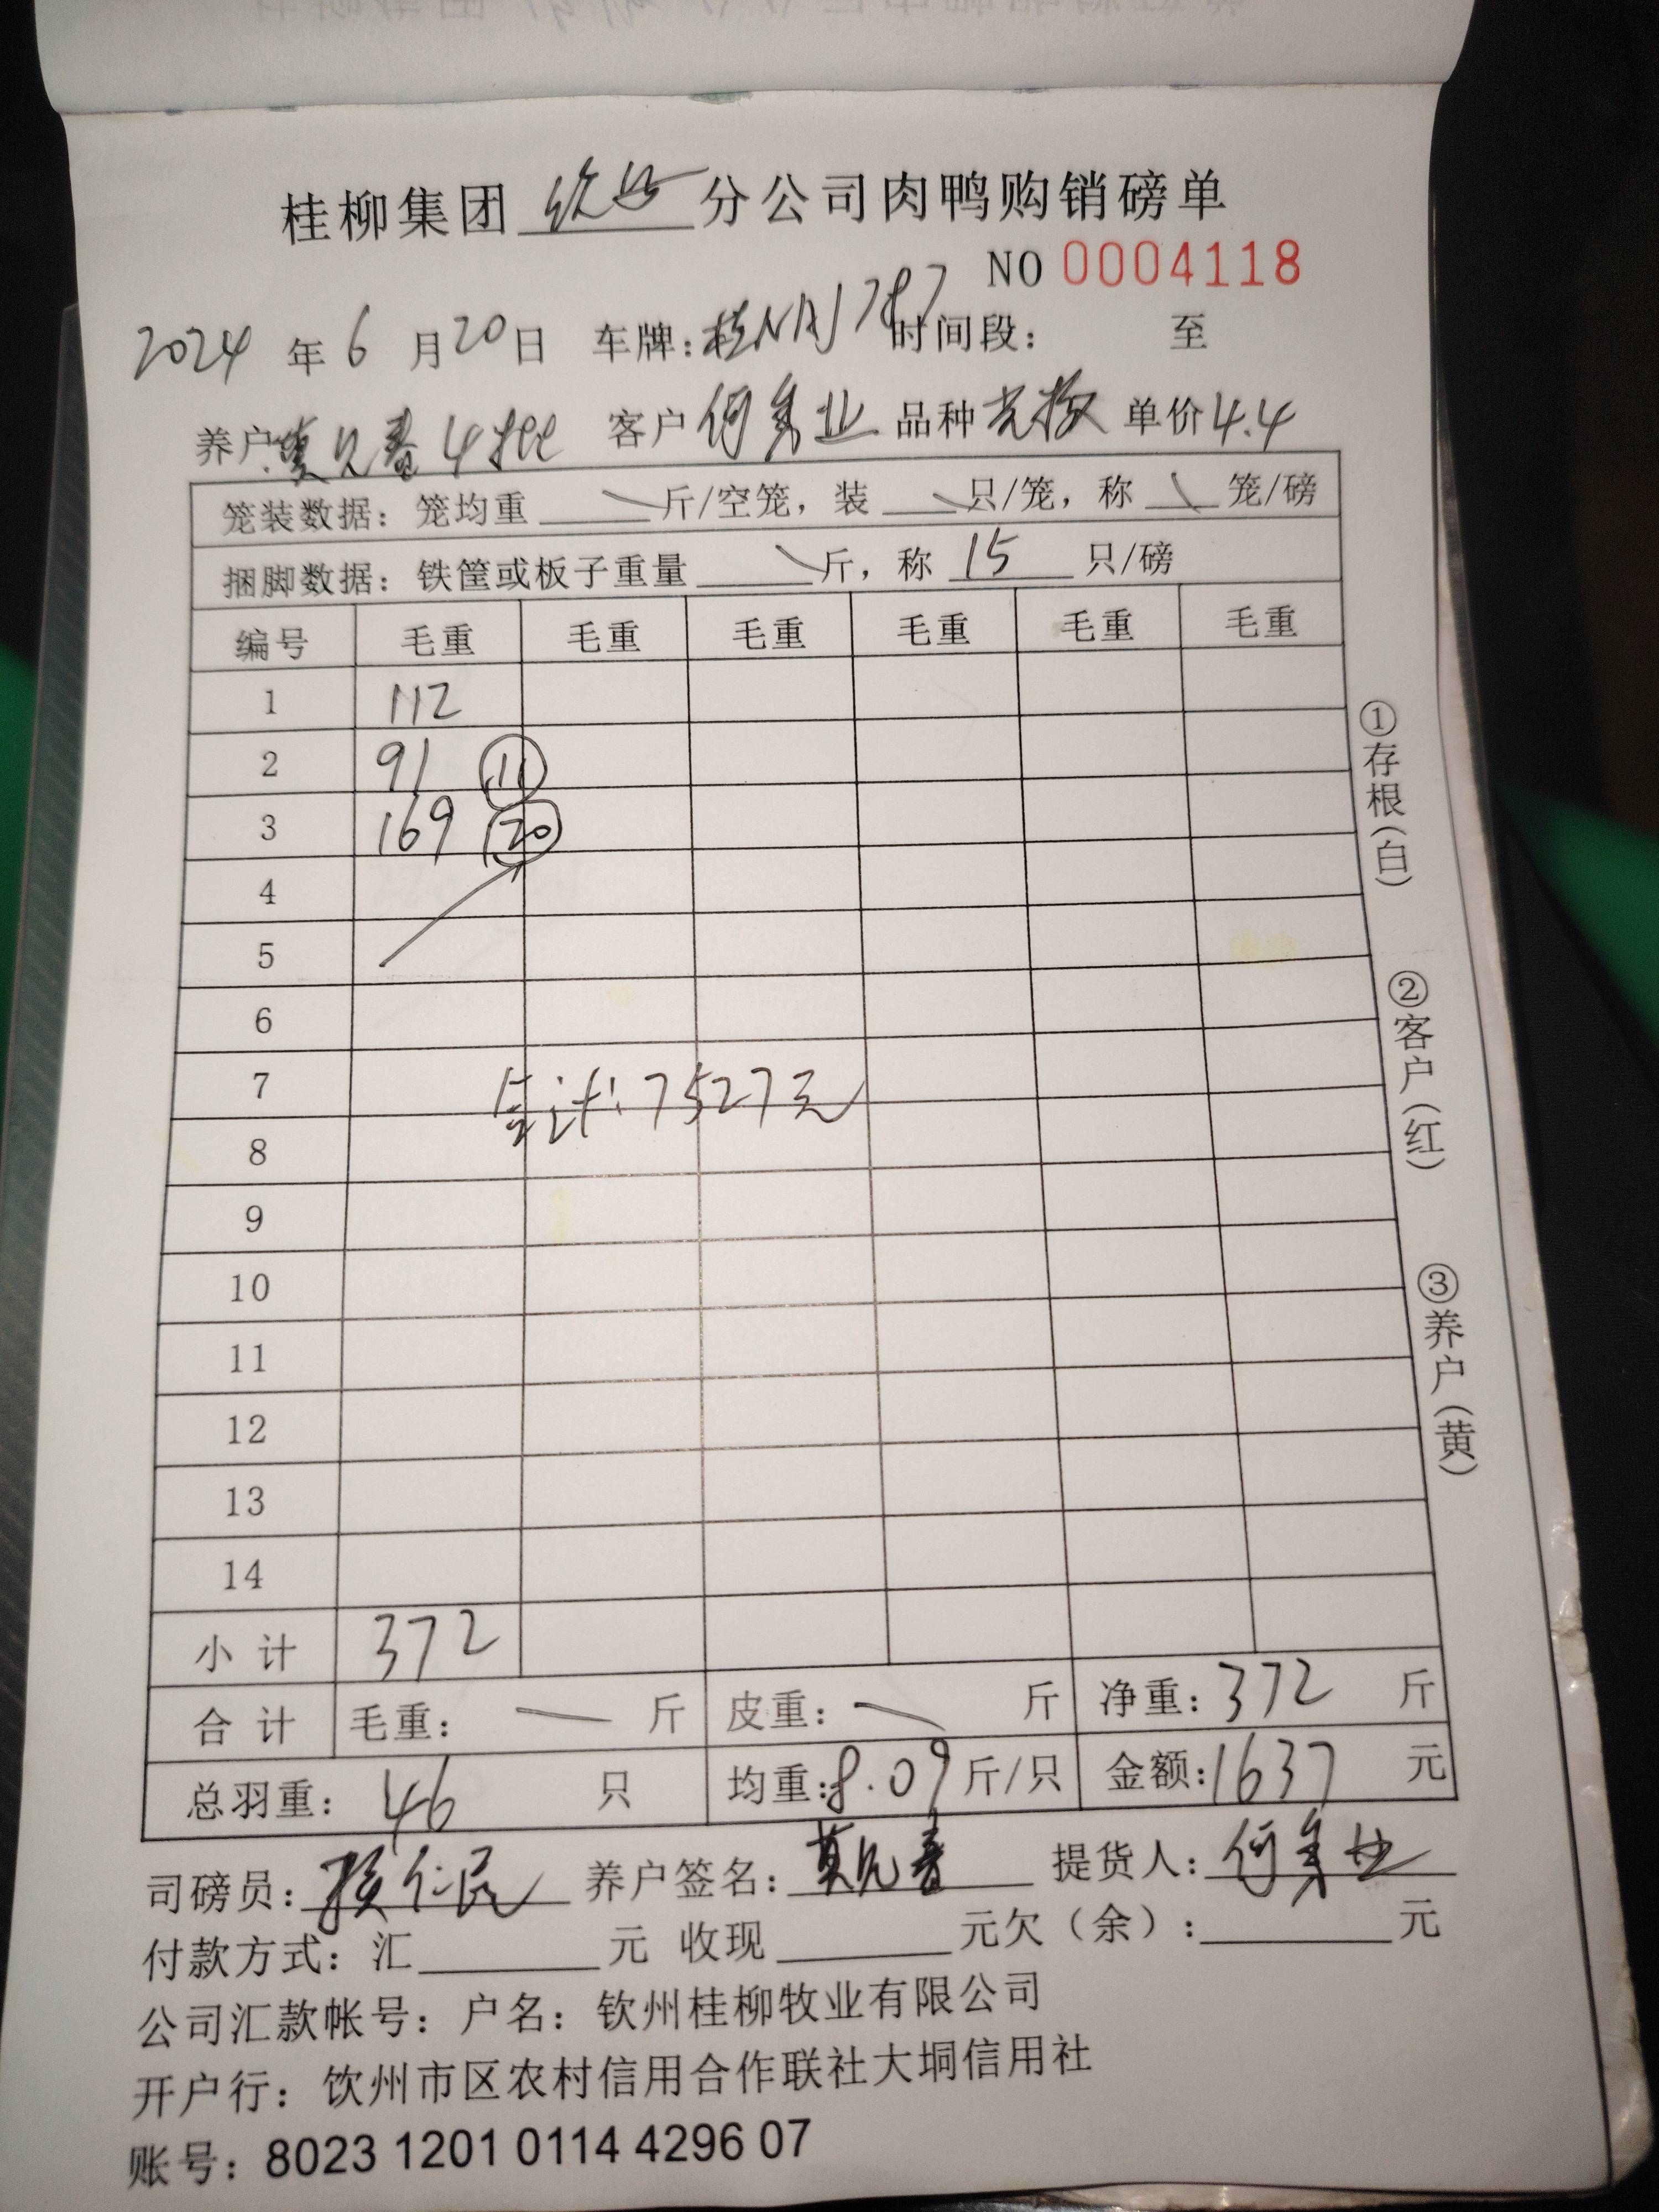 桂柳集团 钦州 分公司肉鸭购销磅单
NO 0004118
2024 年 6 月 20 日 车牌: 桂NAJ787 时间段: 至
养户: 莫 春 4批 客户 何 业 品种 单价 4.4
笼装数据: 笼均重 斤/空笼, 装 只/笼, 称 笼/磅
捆脚数据: 铁筐或板子重量 斤, 称 15 只/磅
编号 毛重 毛重 毛重 毛重 毛重 毛重
1 112
2 91 11
3 169 20
4
5
6
7
合计: 7527元
8
9
10
11
12
13
14
小 计 372
合 计 毛重: 斤 皮重: 斤 净重: 372 斤
总羽重: 46 只 均重: 8.09 斤/只 金额: 1637 元
司磅员: 仁民 养户签名: 莫 春 提货人: 何 业
付款方式: 汇 元 收现 元欠(余): 元
公司汇款帐号: 户名: 钦州桂柳牧业有限公司
开户行: 饮州市区农村信用合作联社大垌信用社
账号: 8023 1201 0114 4296 07
①存根(白)
②客户(红)
③养户(黄)